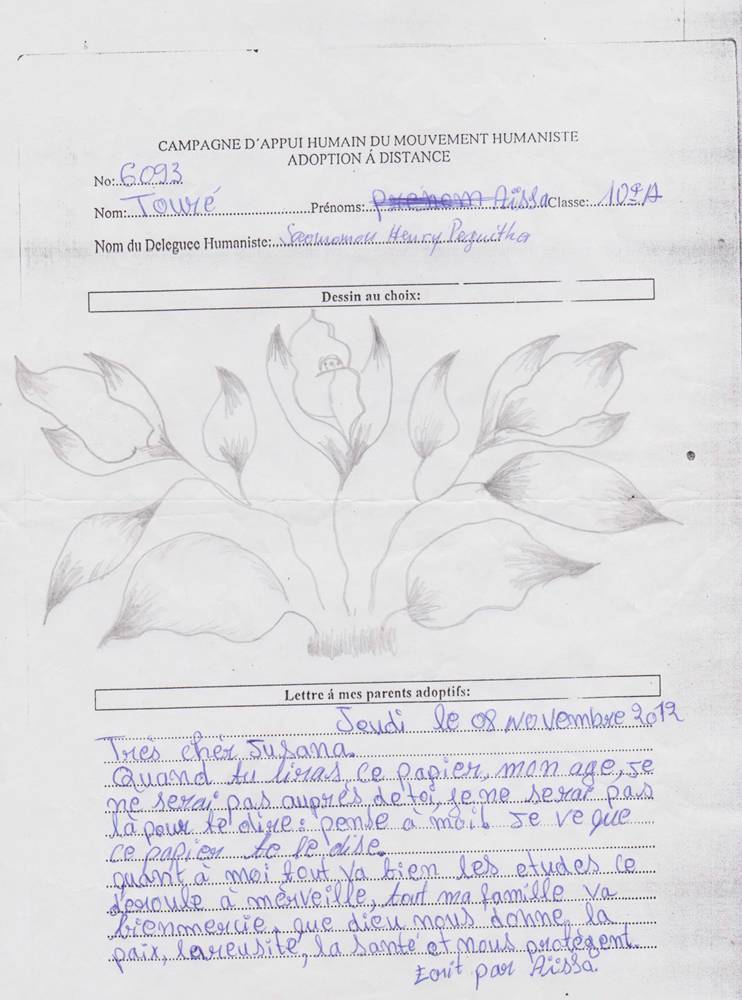 CAMPAGNE D´APPUI HUMAIN DU MOUVEMENT HUMANISTE
ADOPTION Á DISTANCE
No: 6093
Nom: Touré Prénoms: Aïssa Classe: 10e A
Nom du Deleguee Humaniste: Henry
Dessin au choix:
Lettre á mes parents adoptifs:
Jeudi le 08 Novembre 2012
Très cher Susana.
Quand tu liras ce papier, mon age, je
ne serai pas auprès de toi, je ne serai pas
là pour te dire: pense à moi! Je ve que
ce papier te le dise.
quant à moi tout va bien les etudes ce
deroule à merveille, tout ma famille va
bienmercie, que dieu nous donne la
paix, lareusité, la santé et nous protègent.
Ecrit par Aïssa.